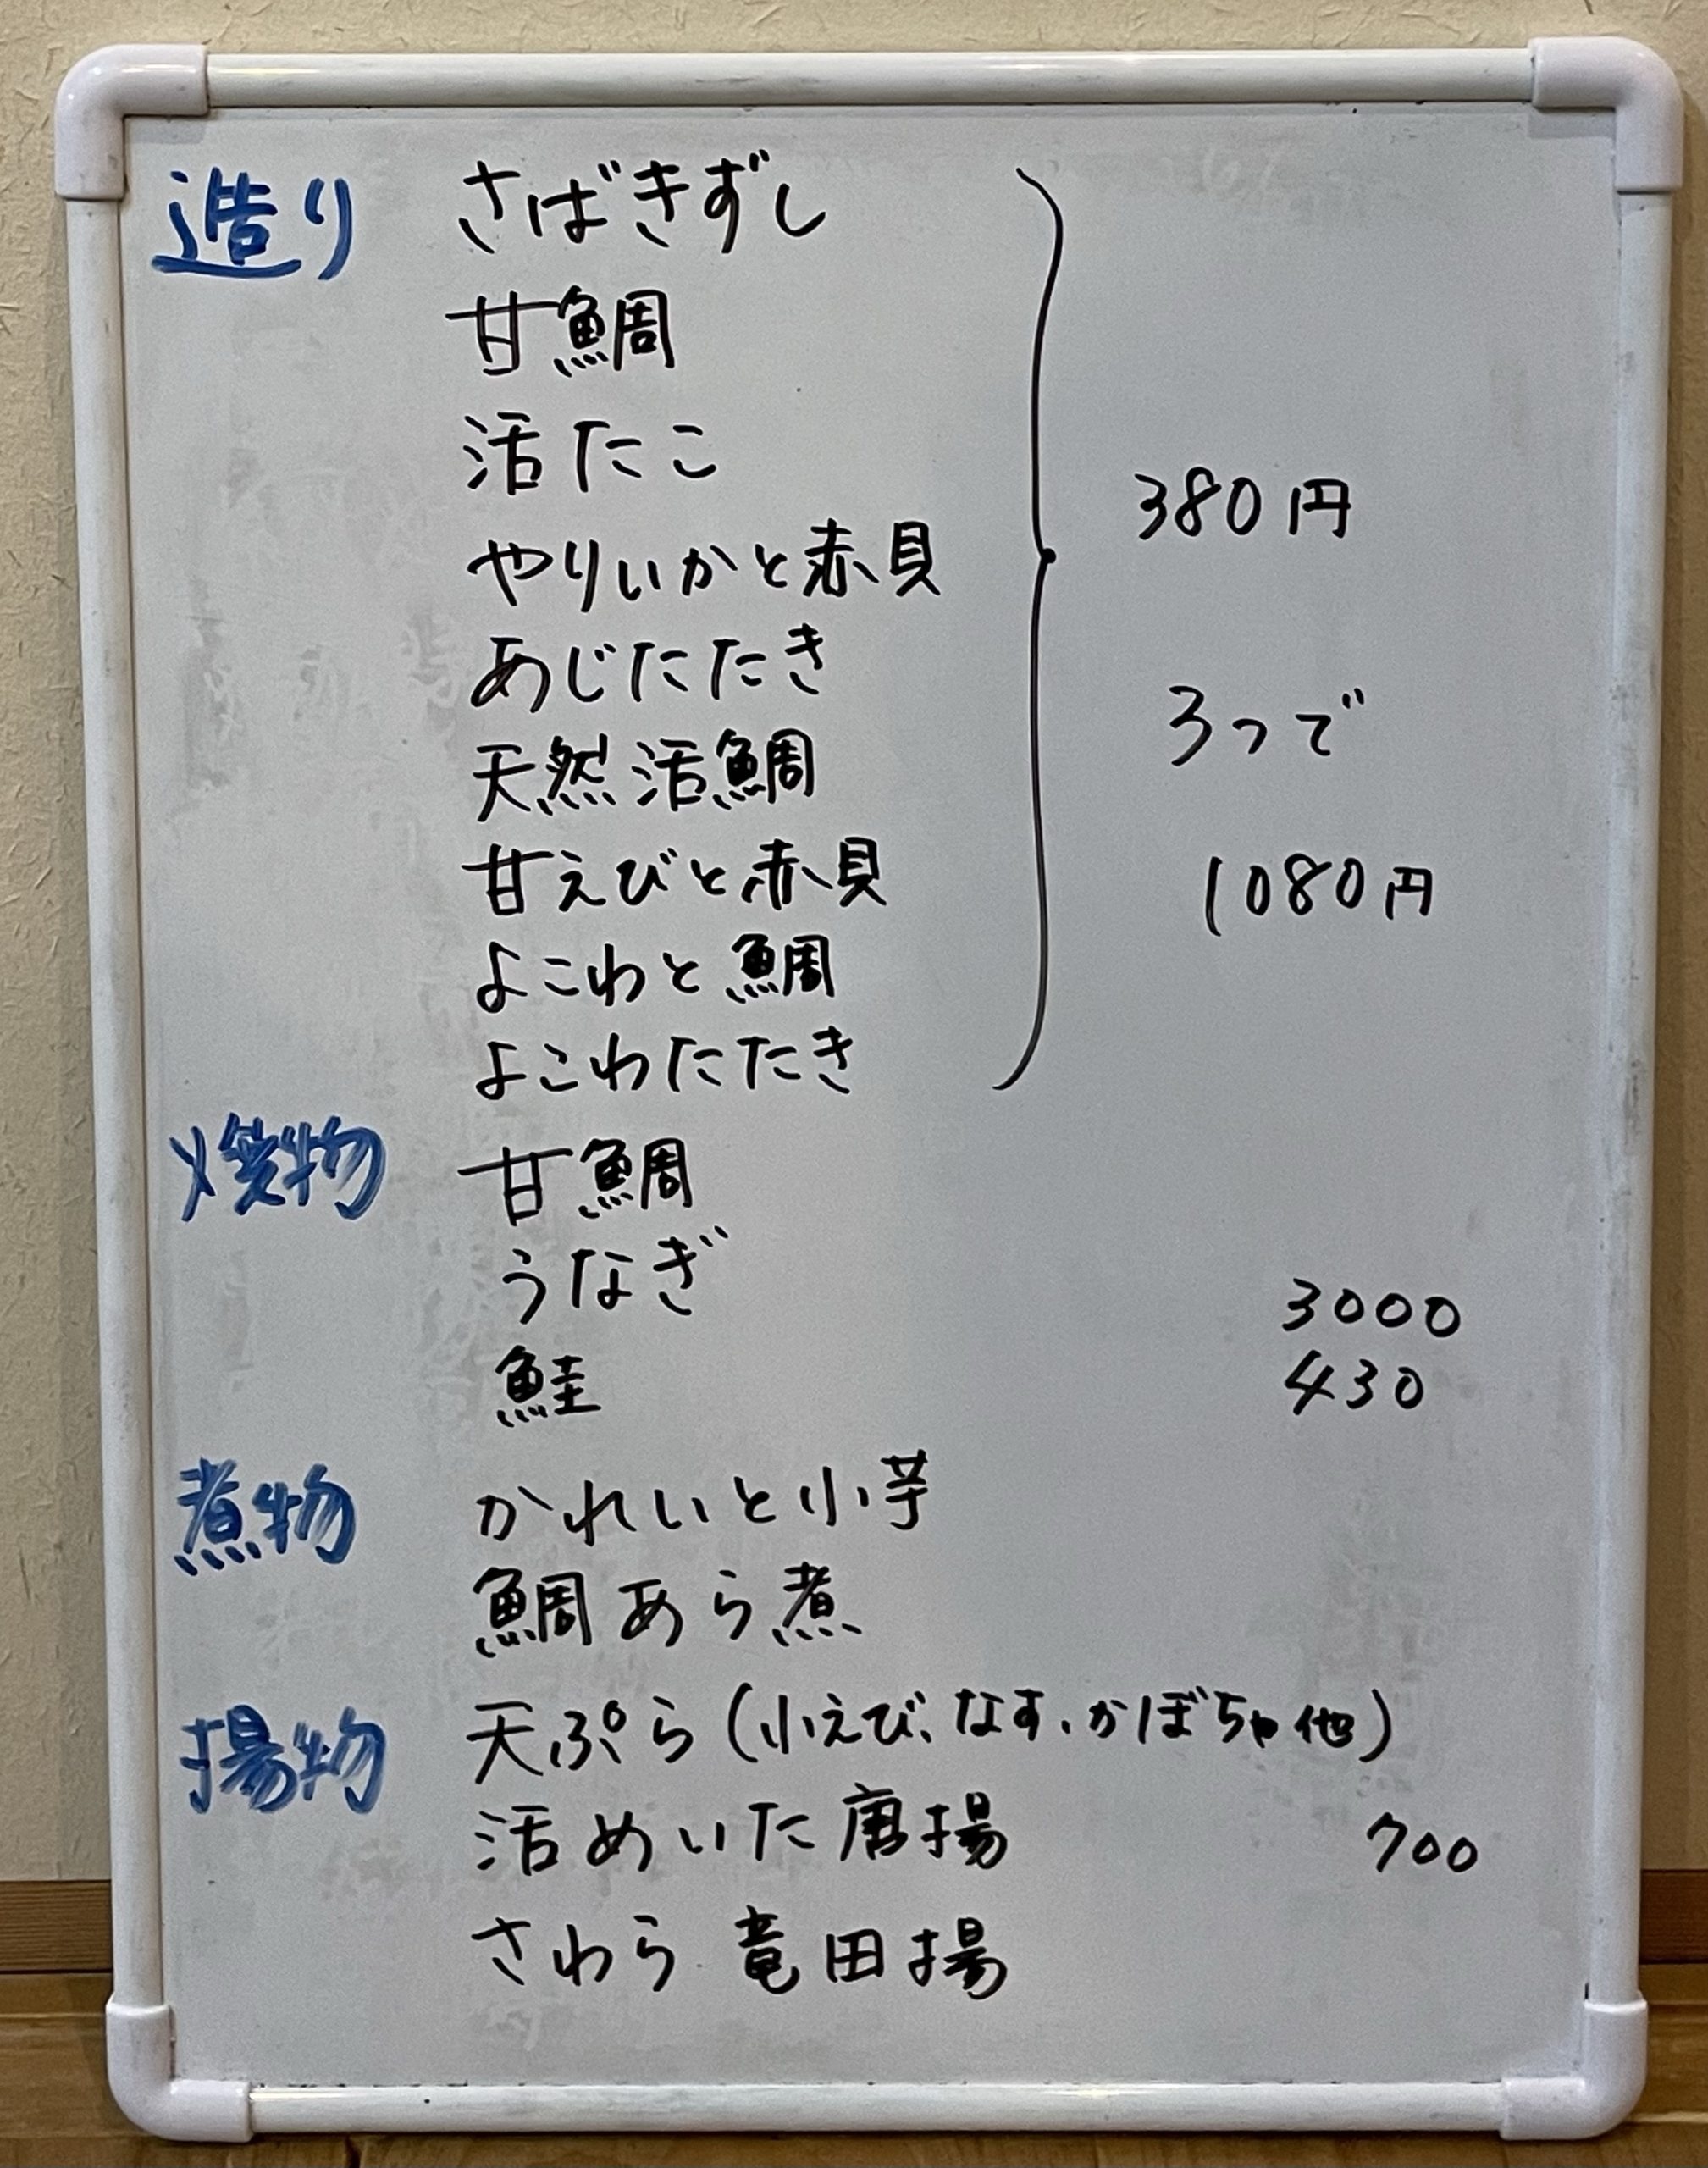 造り さばきずし
甘鯛
活たこ
やりいかと赤貝
あじたたき
天然活鯛
甘えびと赤貝
よこわと鯛
よこわたたき
380円
3つで
1080円
焼物 甘鯛
うなぎ 3000
鮭 430
煮物 かれいと小芋
鯛あら煮
揚物 天ぷら(小えび、なす、かぼちゃ他)
活めいた唐揚 700
さわら竜田揚